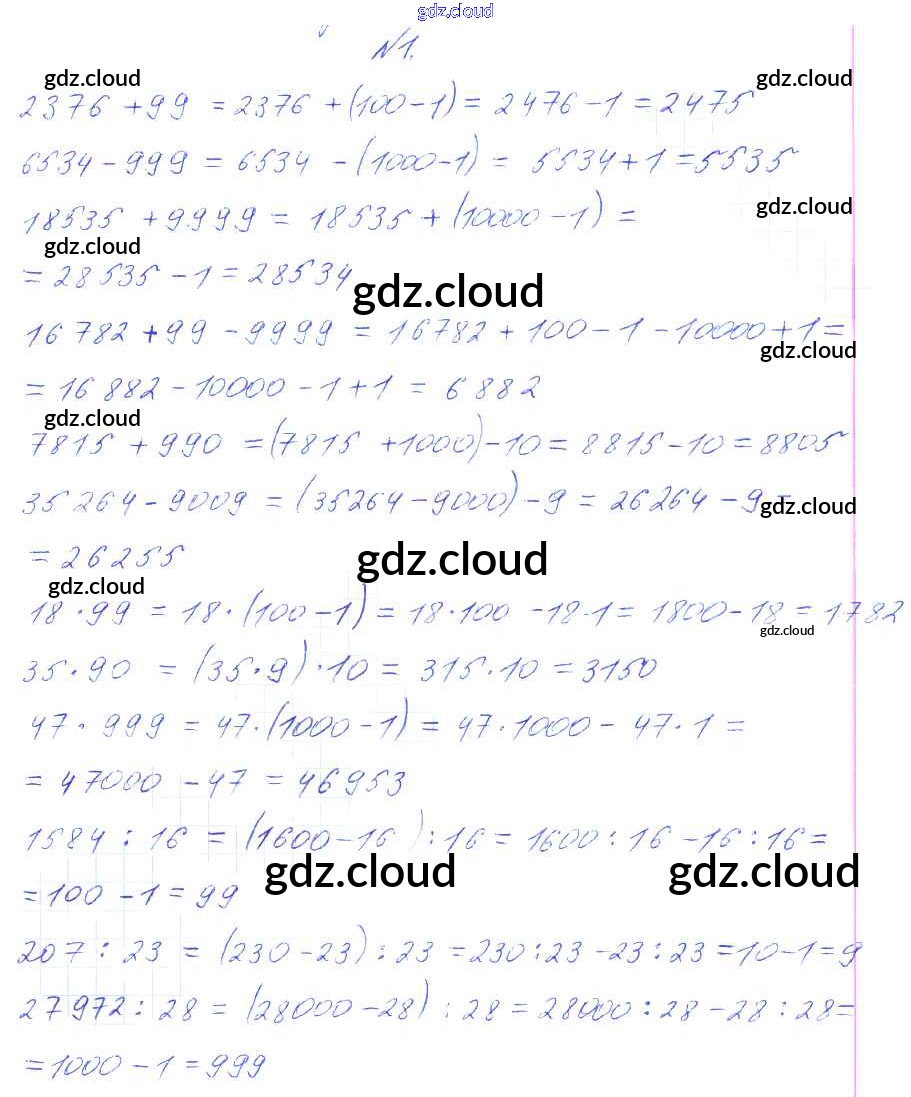 gdz.cloud
№1.
gdz.cloud gdz.cloud
2376 + 99 = 2376 + (100 - 1) = 2476 - 1 = 2475
6534 - 999 = 6534 - (1000 - 1) = 5534 + 1 = 5535
gdz.cloud
18535 + 9999 = 18535 + (10000 - 1) =
gdz.cloud
= 28535 - 1 = 28534
gdz.cloud
16 782 + 99 - 9999 = 16782 + 100 - 1 - 10000 + 1 =
gdz.cloud
= 16 882 - 10000 - 1 + 1 = 6 882
gdz.cloud
7815 + 990 = (7815 + 1000) - 10 = 8815 - 10 = 8805
35 264 - 9009 = (35264 - 9000) - 9 = 26264 - 9 =
gdz.cloud
= 26255
gdz.cloud
gdz.cloud
18 · 99 = 18 · (100 - 1) = 18 · 100 - 18 · 1 = 1800 - 18 = 1782
gdz.cloud
35 · 90 = (35 · 9) · 10 = 315 · 10 = 3150
47 · 999 = 47 · (1000 - 1) = 47 · 1000 - 47 · 1 =
= 47000 - 47 = 46953
1584 : 16 = (1600 - 16) : 16 = 1600 : 16 - 16 : 16 =
gdz.cloud gdz.cloud
= 100 - 1 = 99
207 : 23 = (230 - 23) : 23 = 230 : 23 - 23 : 23 = 10 - 1 = 9
27972 : 28 = (28000 - 28) : 28 = 28000 : 28 - 28 : 28 =
= 1000 - 1 = 999